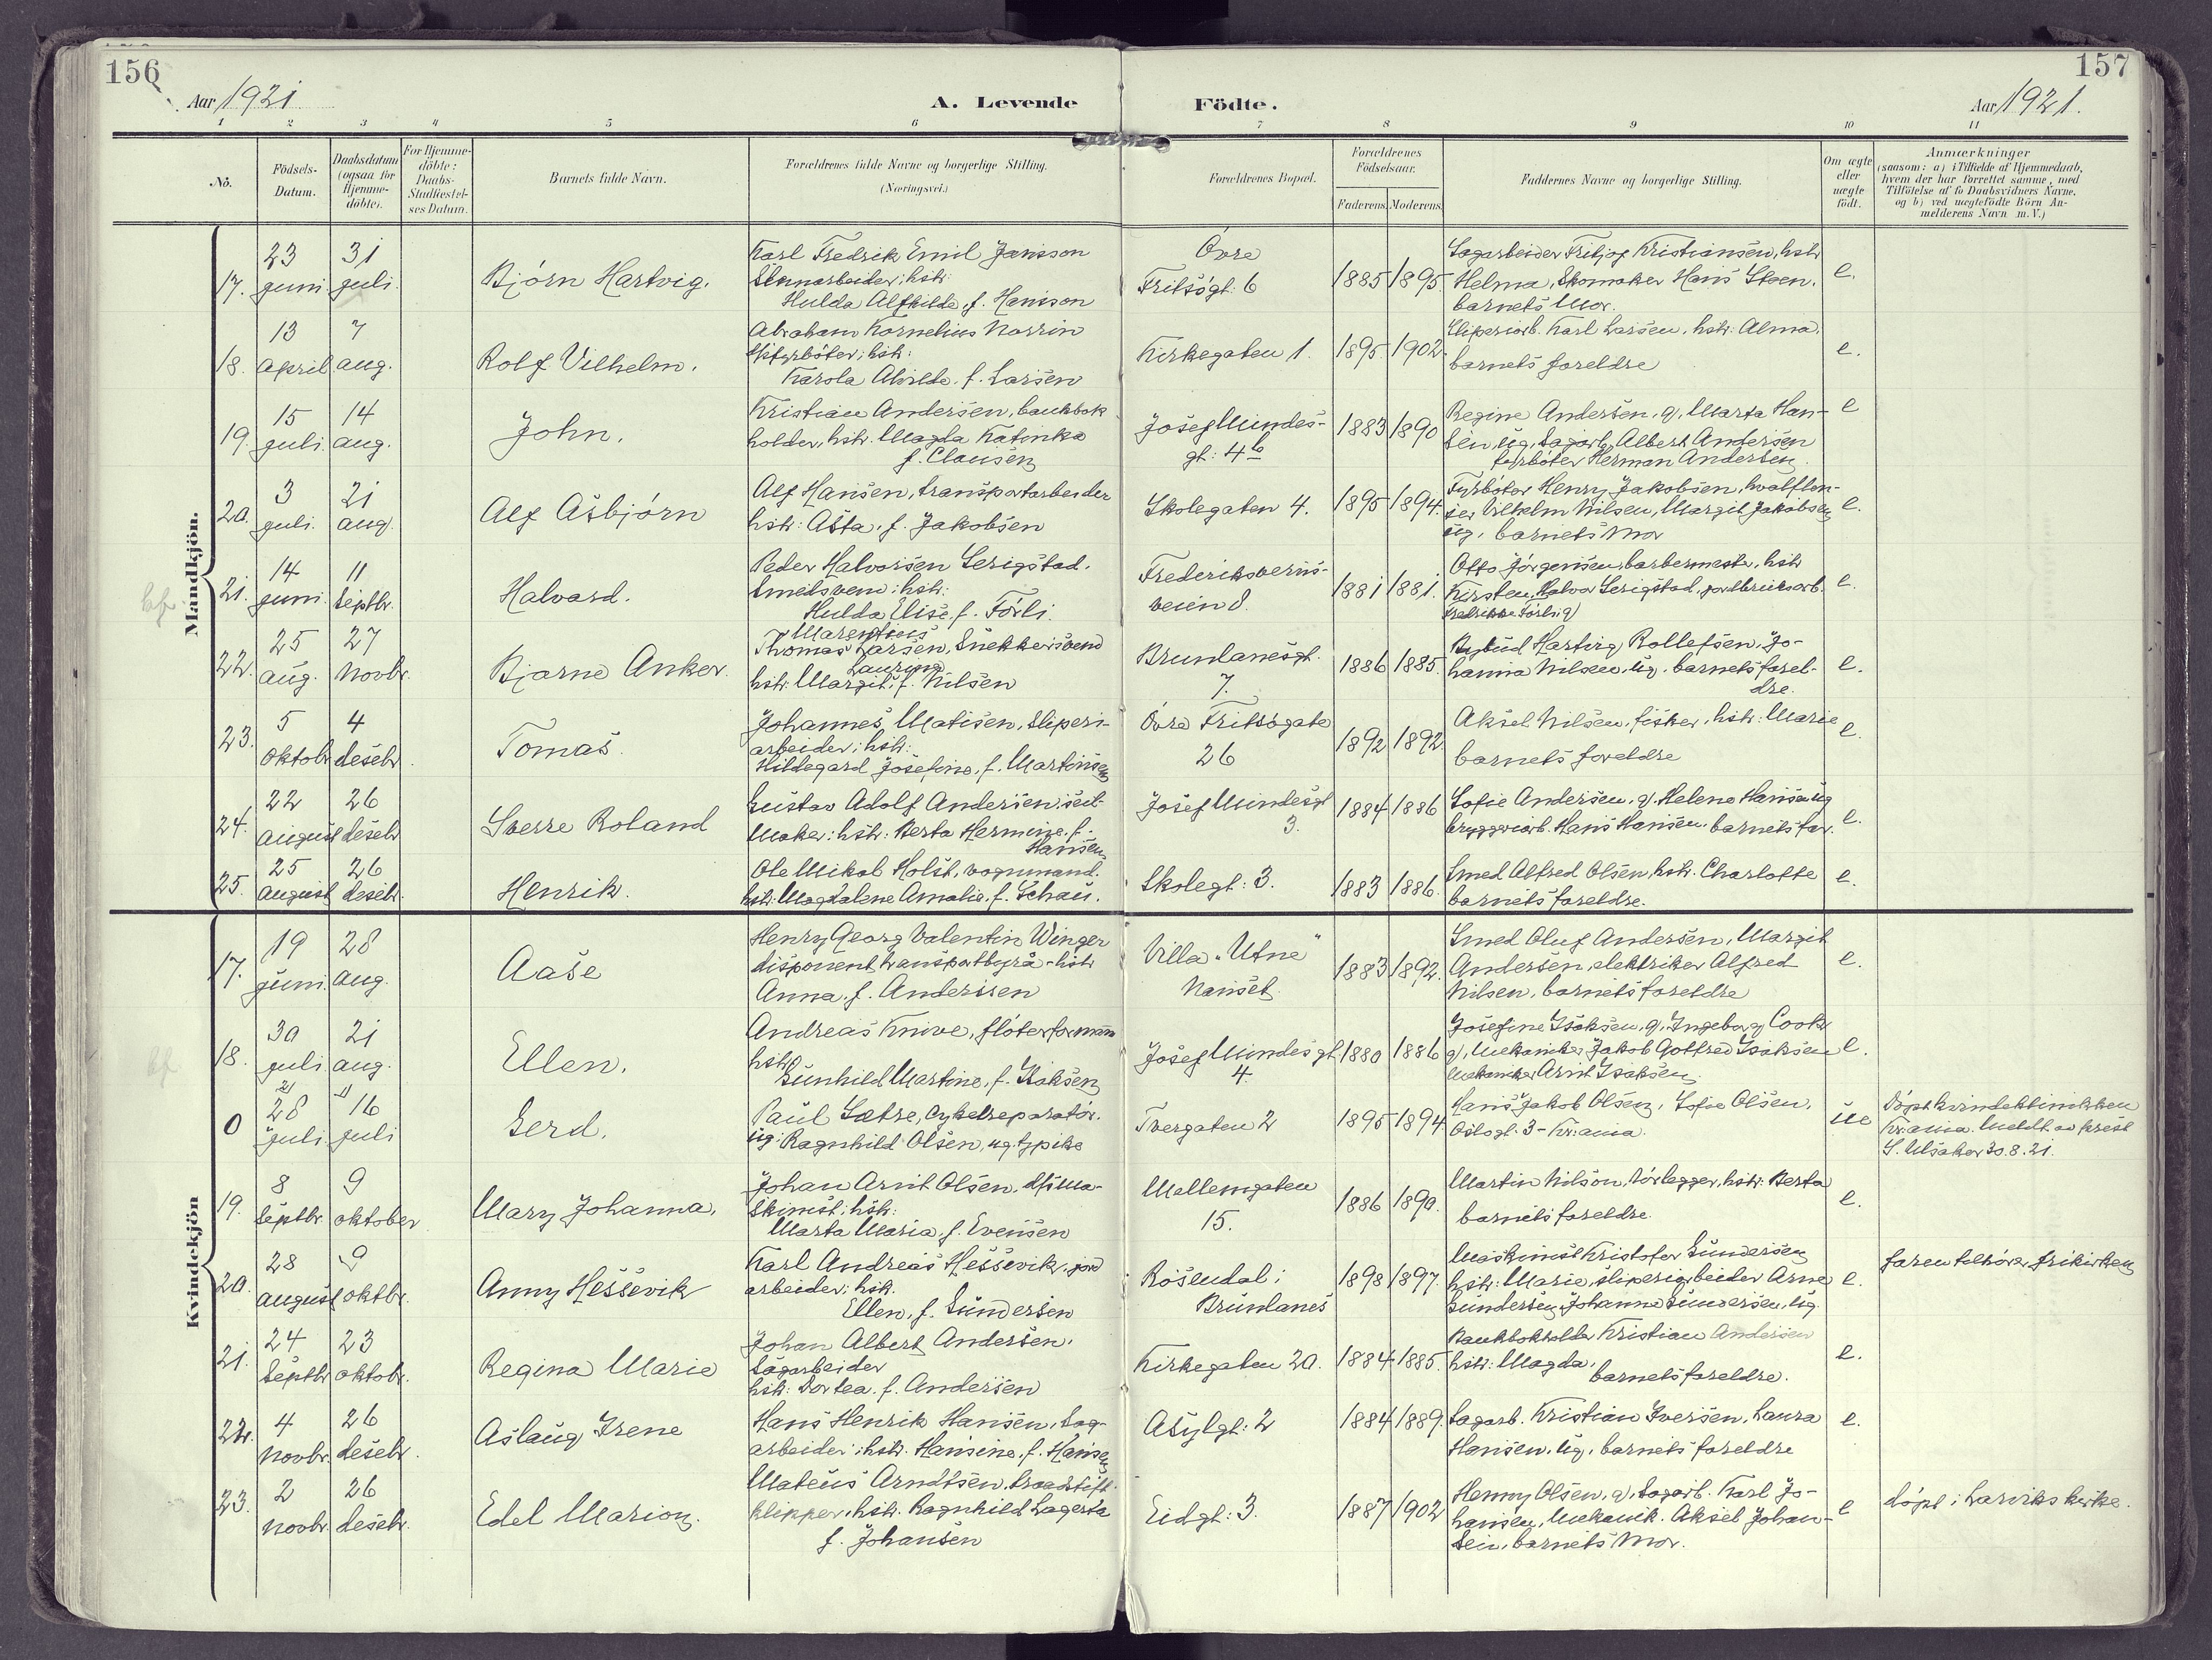 156
157
Aar 1921.
A. Levende
Födte.
Aar 1921.
1 2 3 4 5 6 7 8 9 10 11
No.
Födsels-Datum.
Daabsdatum (ogsaa for Hjemme-döbte).
For Hjemme-döbte: Daabs-Stadfæstel-ses Datum.
Barnets fulde Navn.
Forældrenes fulde Navne og borgerlige Stilling.
(Næringsvei.)
Forældrenes Bopæl.
Forældrenes Födselsaar.
Faderens. Moderens.
Faddernes Navne og borgerlige Stilling.
Om ægte eller uægte födt.
Anmærkninger
(saasom: a) i Tilfælde af Hjemmedaab,
hvem der har forrettet samme, med
Tilföielse af to Daabsvidners Navne,
og b) ved uægtefödte Börn An-
melderens Navn m. V.)
Mandkjön.
17. 23 juni. 31 juli. Bjørn Hartvig.
Karl Fredrik Emil Jansson
Stenarbeider; hstr:
Hulda Alfhilde, f. Hansson
Øvre
Fritsøgt. 6
1885 1895.
Sagarbeider Fritjof Kristiansen, hstr
Helma, Skomaker Hans Steen,
barnets Mor.
e.
18. 13 april 7 aug. Rolf Vilhelm.
Abraham Kornelius Norrin
fyrbøter; hstr:
Karola Alvilde, f. Larsen
Kirkegaten 1.
1895. 1902.
Sliperiarb. Karl Larsen, hstr: Alma,
barnets foreldre
e.
19. 15 juli. 14 aug. John.
Kristian Andersen, bankbok
holder, hstr. Magda Katinka
f. Clausen
Josef Mindes-
gt: 4b
1883 1890
Regine Andersen, g, Marta Han-
sen, ug, Sagarb. Albert Andersen
fyrbøter Herman Andersen.
e
20. 3 juli. 21 aug. Alf Asbjørn
Alf Hansen, transportarbeider
hstr: Asta, f. Jakobsen
Skolegaten 4.
1895 1894.
Fyrbøter Henry Jakobsen, hvalflen-
ser Vilhelm Nilsen, Margit Jakobsen
ug, barnets Mor
e.
21. 14 juni. 11 septbr. Halvard.
Peder Halvorsen Serigstad.
Smedsvend; hstr:
Hulda Elise, f. Førli.
Frederiksverns-
veien 8.
1881 1881.
Otto Jørgensen, barbermester, hstr
Kirsten, Halvor Serigstad, jordbruksarb.
Fredrikke Førli, g)
e.
22. 25 aug. 27 Novbr. Bjarne Anker.
Marentius
Thomas Larsen, Snekkersvend
Laurine
hstr: Margit, f. Nilsen
Brunlanesgt.
7.
1886 1885.
Bybud Hartvig Rollefsen, Jo-
hanna Nilsen, ug. barnets forel-
dre.
e.
23. 5 oktobr 4 desebr. Tomas.
Johannes Matisen, Sliperi-
arbeider; hstr:
Hildegard Josefine, f. Martinsen
Øvre Fritsøgate
26
1892 1892.
Aksel Nilsen, fisker, hstr: Marie
barnets foreldre
e.
24. 22 august 26 desebr Sverre Roland
Gustav Adolf Andersen, seil-
maker; hstr: Berta Hermine, f.
Hansen
Josef Mindesgt
3.
1884 1886
Sofie Andersen, g. Helene Hansen ug
bryggeriarb. Hans Hansen. barnets far.
e.
25. 25 august 26 desebr. Henrik.
Ole Mikal Holst, vognmand.
hstr. Magdalene Amalie, f. Schau.
Skolegt: 3.
1883 1886.
Smed Alfred Olsen, hstr. Charlotte
barnets foreldre.
e.
Kvindekjön
17. 19 juni. 28 aug. Aase
Henry Georg Valentin Winger
disponent transportbyrå - hstr
Anna, f. Andersen
Villa "Utne"
Nanset.
1883 1892.
Smed Oluf Andersen, Margit
Andersen, elektriker Alfred
Nilsen, barnets foreldre
e.
18. 30 juli 21 aug. Ellen.
Andreas Knive, fløterformann
hstr
Gunhild Martine, f. Isaksen
Josef Mindesgt
4.
1880 1886
Josefine Isaksen, g, Ingeborg Cook
g), Mekaniker Jakob Gotfred Isaksen
Mekaniker Arnt Isaksen.
e.
0 28 juli 16 juli Gerd.
Paul Sætre, cykelreparatør.
ug: Ragnhild Olsen, ug. pike
Tvergaten 2
1895 1894
Hans Jakob Olsen, Sofie Olsen,
Oslogt. 3 - Kr:ania.
ue
Døpt kvindeklinikken
Kr.ania. Meldt av prest
30.8.21.
19. 8 septbr. 9 oktober Mary Johanna.
Johan Arnt Olsen, Ma-
skinist; hstr:
Marta Maria, f. Evensen
Mellemgaten
15.
1886 1890.
Martin Nilson, rørlegger, hstr: Berta
barnets foreldre.
e.
20. 28 august 9 oktbr. Anny Hessevik
Karl Andreas Hessevik, jord
arbeider; hstr.
Ellen, f. Gundersen
Rosendal i
Brunlanes
1898 1897.
Maskinist Kristofer Gundersen
hstr: Marie, sliperiarbeider Arne
Gundersen, Johanne Gundersen, ug.
e.
faren tilhører frikirken
21. 24 septbr 23 oktobr. Regina Marie
Johan Albert Andersen.
Sagarbeider
hstr: Dortea, f. Andersen
Kirkegaten 20.
1884 1885.
Bankbokholder Kristian Andersen
hstr: Magda,
barnets foreldre.
e.
22. 4 Novbr. 26 desebr. Aslaug Irene
Hans Henrik Hansen, Sag-
arbeider; hstr. Hansine, f. Hansen
Asylgt: 2
1884 1889.
Sagarb. Kristian Iversen, Laura
Hansen, ug, barnets foreldre
e.
23. 2 Novbr. 26 desebr. Edel Marion.
Mateus Arndtsen, traadstift
klipper, hstr. Ragnhild Lagerta
f. Johansen
Eidgt: 3.
1887 1902
Henny Olsen, g, Sagarb. Karl Jo-
hansen, Mekanik. Aksel Johan-
sen, barnets Mor.
e
døpt i Larviks kirke.